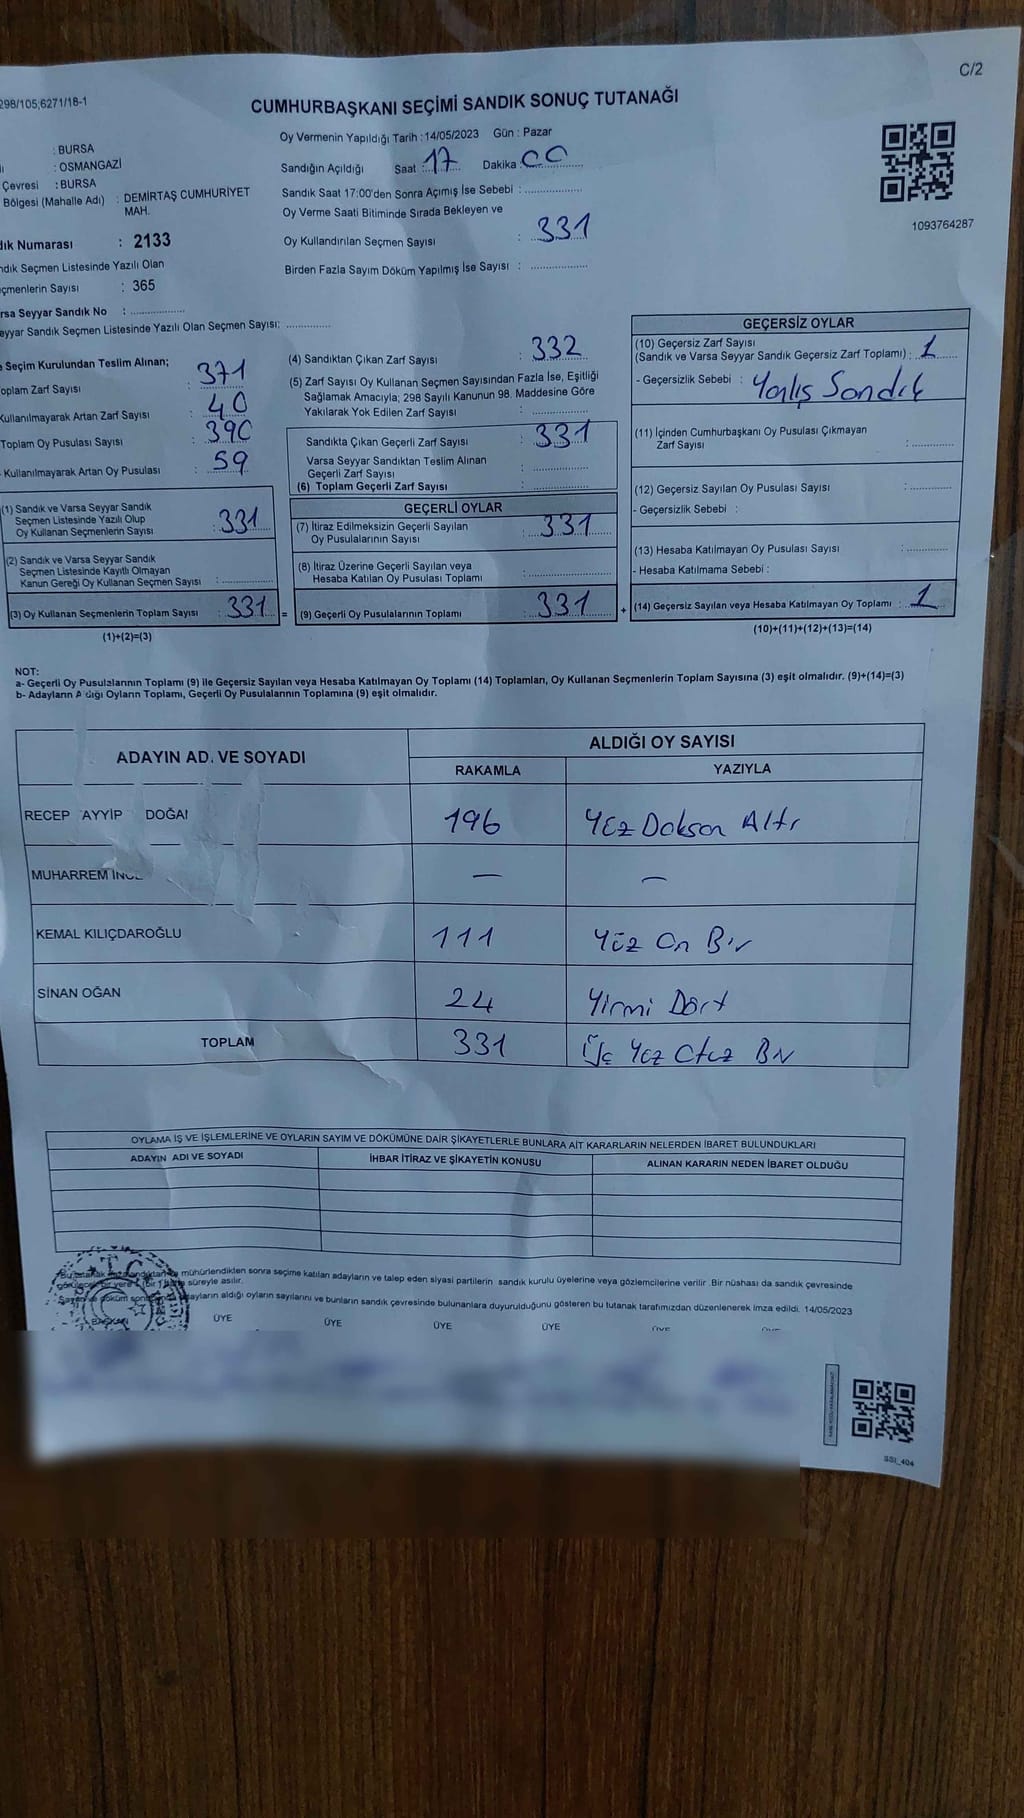 C/2
298/105;6271/18-1
CUMHURBAŞKANI SEÇİMİ SANDIK SONUÇ TUTANAĞI
Oy Vermenin Yapıldığı Tarih : 14/05/2023 Gün : Pazar
: BURSA
: OSMANGAZİ
Çevresi : BURSA
Bölgesi (Mahalle Adı) : DEMİRTAŞ CUMHURİYET MAH.
Numarası : 2133
Seçmen Listesinde Yazılı Olan
Sayısı : 365
Seyyar Sandık No : ..................
Sandık Seçmen Listesinde Yazılı Olan Seçmen Sayısı: ..............
Sandığın Açıldığı Saat : 17 Dakika : 00
Sandık Saat 17:00'den Sonra Açımış İse Sebebi : ..................
Oy Verme Saati Bitiminde Sırada Bekleyen ve
Oy Kullandırılan Seçmen Sayısı : 331
Birden Fazla Sayım Döküm Yapılmış İse Sayısı : ..................
1093764287
Seçim Kurulundan Teslim Alınan;
Toplam Zarf Sayısı : 371
Kullanılmayarak Artan Zarf Sayısı : 40
Toplam Oy Pusulası Sayısı : 390
Kullanılmayarak Artan Oy Pusulası : 59
(1) Sandık ve Varsa Seyyar Sandık
Seçmen Listesinde Yazılı Olup
Oy Kullanan Seçmenlerin Sayısı : 331
(2) Sandık ve Varsa Seyyar Sandık
Seçmen Listesinde Kayıtlı Olmayan
Kanun Gereği Oy Kullanan Seçmen Sayısı : ..............
(3) Oy Kullanan Seçmenlerin Toplam Sayısı : 331 =
(1)+(2)=(3)
(4) Sandıktan Çıkan Zarf Sayısı : 332
(5) Zarf Sayısı Oy Kullanan Seçmen Sayısından Fazla İse, Eşitliği
Sağlamak Amacıyla; 298 Sayılı Kanunun 98. Maddesine Göre
Yakılarak Yok Edilen Zarf Sayısı : ..............
Sandıkta Çıkan Geçerli Zarf Sayısı : 331
Varsa Seyyar Sandıktan Teslim Alınan
Geçerli Zarf Sayısı : ..............
(6) Toplam Geçerli Zarf Sayısı : ..............
GEÇERLİ OYLAR
(7) İtiraz Edilmeksizin Geçerli Sayılan
Oy Pusulalarının Sayısı : 331
(8) İtiraz Üzerine Geçerli Sayılan veya
Hesaba Katılan Oy Pusulası Toplamı : ..............
(9) Geçerli Oy Pusulalarının Toplamı : 331 +
GEÇERSİZ OYLAR
(10) Geçersiz Zarf Sayısı
(Sandık ve Varsa Seyyar Sandık Geçersiz Zarf Toplamı) : 1
- Geçersizlik Sebebi : Yanlış Sandık
(11) İçinden Cumhurbaşkanı Oy Pusulası Çıkmayan
Zarf Sayısı : ..............
(12) Geçersiz Sayılan Oy Pusulası Sayısı : ..............
- Geçersizlik Sebebi :
(13) Hesaba Katılmayan Oy Pusulası Sayısı : ..............
- Hesaba Katılmama Sebebi :
(14) Geçersiz Sayılan veya Hesaba Katılmayan Oy Toplamı : 1
(10)+(11)+(12)+(13)=(14)
NOT:
a- Geçerli Oy Pusulalarının Toplamı (9) ile Geçersiz Sayılan veya Hesaba Katılmayan Oy Toplamı (14) Toplamları, Oy Kullanan Seçmenlerin Toplam Sayısına (3) eşit olmalıdır. (9)+(14)=(3)
b- Adayların Aldığı Oyların Toplamı, Geçerli Oy Pusulalarının Toplamına (9) eşit olmalıdır.
ADAYIN AD. VE SOYADI
ALDIĞI OY SAYISI
RAKAMLA YAZIYLA
RECEP AYYİP DOĞA 196 Yüz Doksan Altı
MUHARREM İNCE — —
KEMAL KILIÇDAROĞLU 111 Yüz On Bir
SİNAN OĞAN 24 Yirmi Dört
TOPLAM 331 Üç Yüz Otuz Bir
OYLAMA İŞ VE İŞLEMLERİNE VE OYLARIN SAYIM VE DÖKÜMÜNE DAİR ŞİKAYETLERLE BUNLARA AİT KARARLARIN NELERDEN İBARET BULUNDUKLARI
ADAYIN ADI VE SOYADI İHBAR İTİRAZ VE ŞİKAYETİN KONUSU ALINAN KARARIN NEDEN İBARET OLDUĞU
Bu tutanak mühürlendikten sonra seçime katılan adayların ve talep eden siyasi partilerin sandık kurulu üyelerine veya gözlemcilerine verilir. Bir nüshası da sandık çevresinde
süreyle asılır.
adayların aldığı oyların sayılarını ve bunların sandık çevresinde bulunanlara duyurulduğunu gösteren bu tutanak tarafımızdan düzenlenerek imza edildi. 14/05/2023
BAŞKAN ÜYE ÜYE ÜYE ÜYE
SSI_404